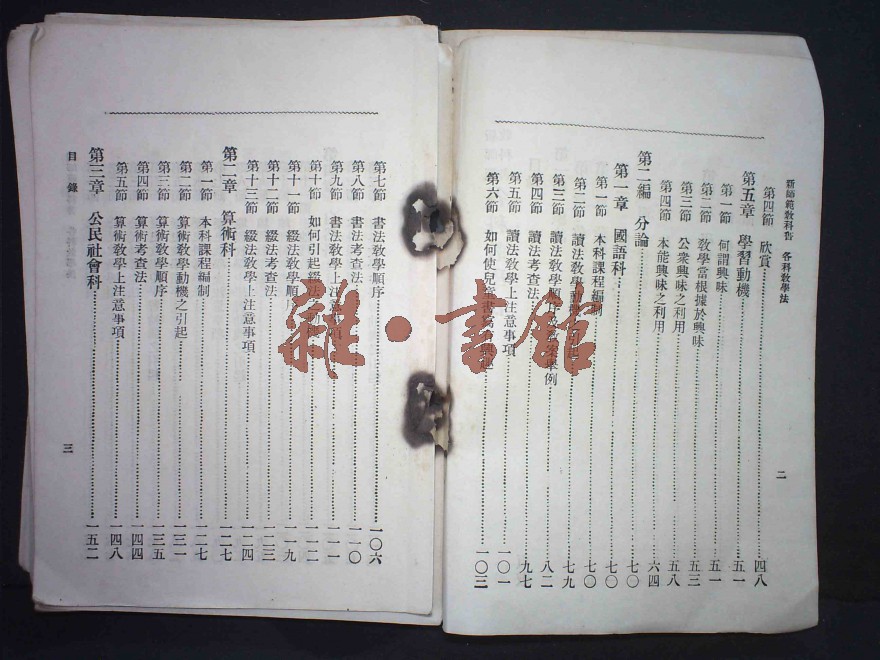 新師範教科書 各科教學法
二
第四節 欣賞 四八
第五章 學習動機 五一
第一節 何謂興味 五一
第二節 教學當根據於興味 五三
第三節 公衆興味之利用 五八
第四節 本能興味之利用 六四
第二編 分論 七〇
第一章 國語科 七〇
第一節 本科課程編制 七〇
第二節 讀法教學 七九
第三節 讀法教學順序 舉例 八二
第四節 讀法考查法 九七
第五節 讀法教學上注意事項 一〇一
第六節 如何使兒童書寫 一〇三
第七節 書法教學順序 一〇六
第八節 書法考查法 一一〇
第九節 書法教學上注意事項 一一一
第十節 如何引起綴法 一一二
第十一節 綴法教學順序 一一九
第十二節 綴法考查法 一二三
第十三節 綴法教學上注意事項 一二四
第二章 算術科 一二七
第一節 本科課程編制 一二七
第二節 算術教學動機之引起 一三一
第三節 算術教學順序 一三五
第四節 算術考查法 一四四
第五節 算術教學上注意事項 一四八
第三章 公民社會科 一五二
目錄
三
雜·書館